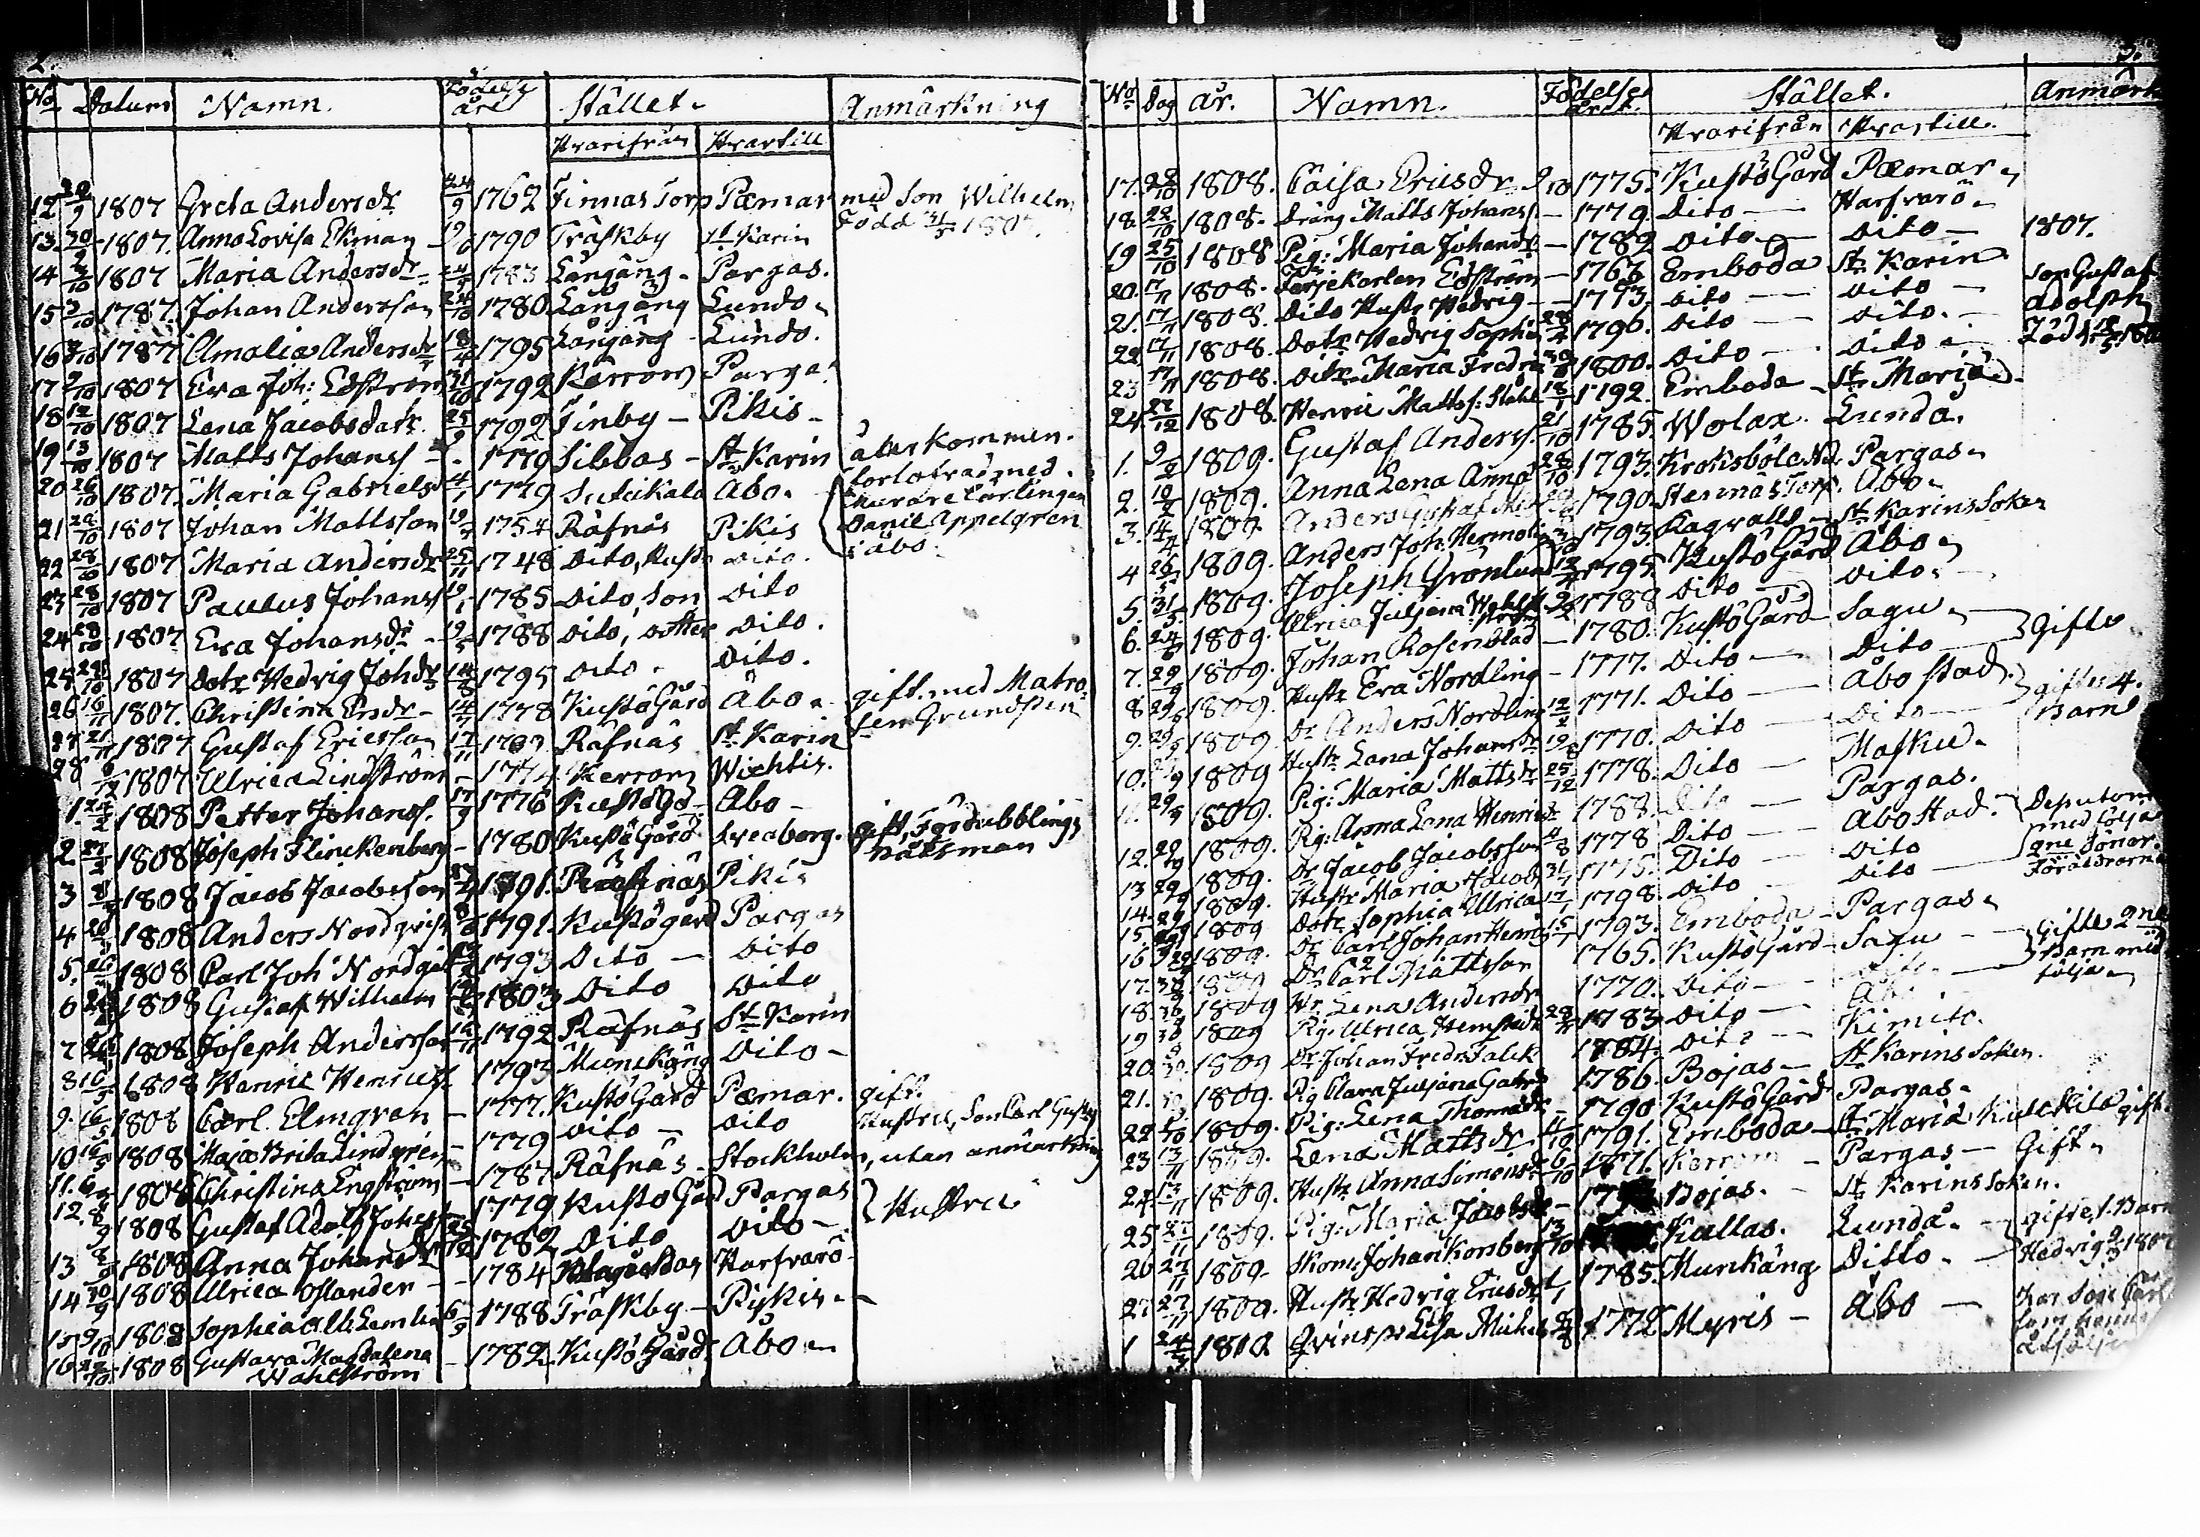 2.
No Datum Namn. Födelse året Stället. Anmärkning
Hvarifrån Hvartill
12 20/9 1807 Greta Andersdr 24/9 1762 Finnas Torp Pæmar med Son Wilhelm
Född 31/5 1807.
13. 30/9 1807. Anna Lovisa Ekman 1790 Träskby St Karin
14 3/10 1807 Maria Andersdr 1783 Långäng. Pargas.
15 3/10 1787. Johan Andersson 24/10 1780 Långäng Lundo.
16 3/10 1787 Amalia Andersdr 18/4 1795 Långäng Lundo.
17 9/10 1807 Eva Joh: Edström 31/10 1792 Kärrom Pargas
18 12/10 1807 Lena Jacobsdotr. 25/9 1792 Finby – Pikis –
19 13/10 1807 Matts Johanss – 1779 Sibbas – St Karin återkommen.
20 26/10 1807. Maria Gabrielsd 4/1 1779 Åbo. förlofvad med
Murare Lärlingen
21 28/10 1807 Johan Mattsson 19/2 1754 Räfnäs Pikis Daniel Appelgren
i åbo.
22 28/10 1807 Maria Andersdr 25/11 1748 Dito, Hustr Dito.
23 28/10 1807 Paulus Johanss 1785 Dito, Son Dito
24 28/10 1807 Eva Johansdr 19/5 1788 Dito, Dotter Dito.
25 28/10 1807 Dotr Hedvig Johdr 14/8 1795 Dito. Dito.
26 16/11 1807. Christina Ersdr – 14/7 1778 Kustö Gård Åbo. gift med Matro-
sen Grundsten
27 21/11 1807 Gustaf Ericsson 17/11 Räfnäs St Karin
28 9/12 1807 Ulrica Lindström – 1774. Kerrom Wichtis.
1. 24/2 1808 Petter Johanss. 17/9 1776 Kustö Gd Åbo –
2 27/2 1808 Joseph Flinckenberg – 1780 Kustö Gård Sveaborg. gift, Fördubblings
båtsman
3 1808 Jacob Jacobsson 1791. Räfnäs Pikis
4 1808 Anders Nordqvist 1791. Kustö gård Pargas
5. 1808 Carl Joh Nordqvi 1793 Dito – Dito
6 1808 Gustaf Wilhelm 1803 Dito Dito
7 1808 Joseph Andersson 1792 Räfnäs St Karin
8 16/5 1808 Henric Henricss 1793 Munckäng Dito –
9. 16/5 1808 Carl Elmgren – 1777. Kustö Gård Pæmar. gift.
10 16/5 1808 Maja Brita Lindgren – 1779 Dito – Dito Hustru, Son Carl Gustaf
11. 1808 Christina Engström – 1787 Räfnäs – Stockholm, utan anmärkning
12. 8/9 1808 Gustaf Adolf Johanss 1779 Kustö Gård Pargas
13 8/9 1808 Anna Johansdr 1782 Dito Dito – Hustru
14 10/9 1808 Ulrica Oslander – 1784 Harfvarö
15 9/10 1808 Sophia Alb: 6/9 1788 Träskby – Pijkis –
16 22/10 1808 Gustava Magdalena – 1782 Kustö Gård Åbo
Wahlström
3.
No Dag år. Namn. Födelse året. Stället. Anmärk
Hvarifrån Hvartill.
17. 22/10 1808. Caisa Ericsdr 1775. Kustö Gård Pæmar
18. 22/10 1808. Dräng Matts Johanss – 1779. Dito – Harfvarö
19 25/10 1808 Pig: Maria Johansdr – 1782 Dito – Dito – 1807.
20. 17/11 1808. Färjekarlen Edström – 1767 Emboda St Karin Son Gustaf
21. 17/11 1808. Dito Hustr Hedvig – 1773. Dito – Dito – Adolph
22 17/11 1808. Dotr Hedvig Sophia 28/2 1796. Dito – Dito. – Född
23 17/11 1808. Ditr Maria Fredri 1800. Dito – Dito
24. 27/12 1808. Henric Mattss: Stahl 18/1 1792. Emboda – St Maria
1. 9/2 1809. Gustaf Anderss. 21/10 1785. Wolax. Lunda.
2. 10/2 1809. Anna Lena Anna 28/10 1793. Krokisböle Nd. Pargas
3. 14/4 1809. Anders Gustaf 1790. Stennas Torp. Åbo
4 26/5 1809. Anders Joh: Hermolin 1793. Kagvalls – St Karins Soken
5. 31/5 1809. Joseph Grönlund 1795. Kustö Gård Åbo
6. 24/8 1809. Ulrica Juljana 1788 Dito – Dito
7. 29/9 1809. Johan Rosenblad – 1780. Kustö Gård Sagu Gifte
8 29/9 1809. Hustr Eva Nordling – 1777. Dito – Dito
9. 29/9 1809. Dr Anders Nordling 12/2 1771. Dito – Åbo Stad. gifte, 4.
10. 29/9 1809 Hustr Lena Johansdr 19/8 1770. Dito – Dito Barn
11. 29/9 1809. Pig: Maria Mattsdr 25/12 1778. Dito – Masku.
12. 29/9 1809. Pig: Anna Lena Henricsdr 1788. Dito – Pargas.
13 29/9 1809. Dr Jacob Jacobsson 4/8 1778 Dito – Åbo Stad. –
14. 29/9 1809. Hustr Maria Jacobs 31/7 1775. Dito – Dito
15 29/9 1809 Dotr Sophia Ulrica 1798. Dito – Dito – Föräldrarna
16 29/9 1809. Dr Carl Johan Henric 15/7 1793. Emboda – Pargas
17. 30/9 1809 Dr Carl Mattsson 1765. Kustö Gård Sagu – – Gifte 2ne
18. 30/9 1809 Hr: Lena Andersdr 1770. Dito – Dito – Barn med
följa
19 30/9 1809 Pig: Ulrica Hemstedt 28/2 1783 Dito – Åbo
20. 1809 Dr Johan Fredr: Falck 1784. Dito – Kimito.
21. 1809. Pig Clara Juljana Gabrd 1786. Bojas – St Karins Soken.
22 6/10 1809. Pig: Lena Thomasdr – 1790 Kustö Gård Pargas –
23 13/11 1809. Lena Mattsdr. 11/10 1791. Emboda – St Maria gift.
24. 13/11 1809. Hustr Anna Simonsdr 6/10 1771. Kerrom – Pargas – Gift
25 27/11 1809. Pig: Maria Jacobsdr – Bojas. – St Karins Soken.
26 27/11 1809. Skom: Johan Kornberg 13/10 Kallas. Lunda. gifte, 1. Barn
27 27/11 1809. Hustr Hedvig Ericsdr 1/1 1785. Munkäng Ditto. – Hedvig
1 24/3 1810 Lisa 1772 Myris – Åbo –